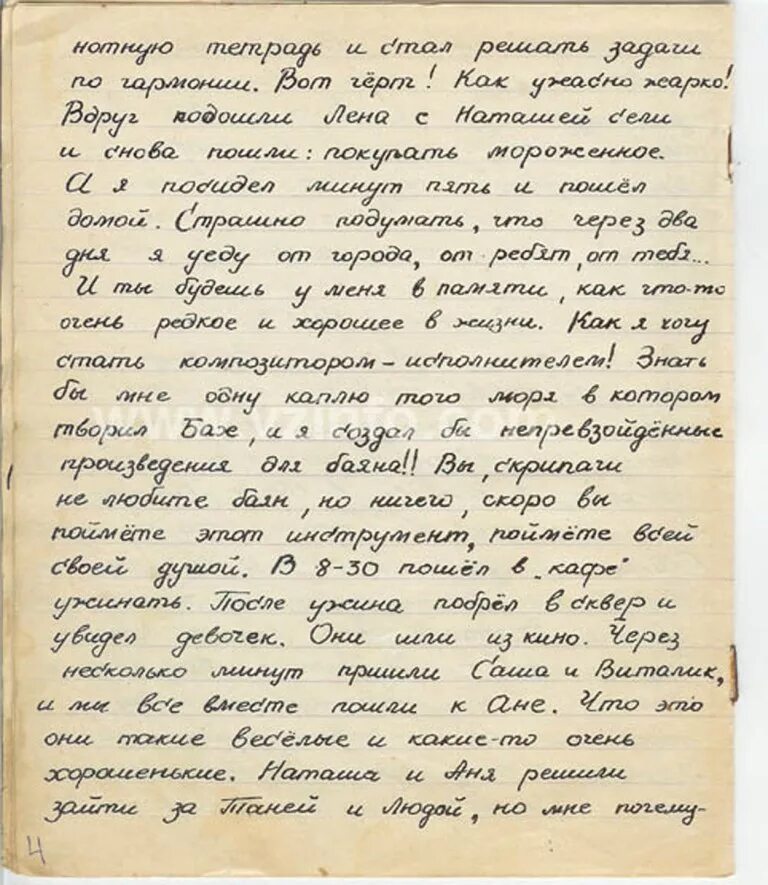 нотную тетрадь и стал решать задачи
по гармонии. Вот чёрт! Как ужасно жарко!
Вдруг подошли Лена с Наташей сели
и снова пошли: покупать мороженное.
А я посидел минут пять и пошёл
домой. Страшно подумать, что через два
дня я уеду от города, от ребят, от тебя...
И ты будешь у меня в памяти, как что-то
очень редкое и хорошее в жизни. Как я хочу
стать композитором-исполнителем! Знать
бы мне одну каплю того моря в котором
творил Бах, и я создал бы непревзойдённые
произведения для баяна!! Вы, скрипачи
не любите баян, но ничего, скоро вы
поймёте этот инструмент, поймёте всей
своей душой. В 8-30 пошёл в „кафе"
ужинать. После ужина побрёл в сквер и
увидел девочек. Они шли из кино. Через
несколько минут пришли Саша и Виталик,
и мы все вместе пошли к Ане. Что это
они такие весёлые и какие-то очень
хорошенькие. Наташа и Аня решили
зайти за Таней и Людой, но мне почему-
4